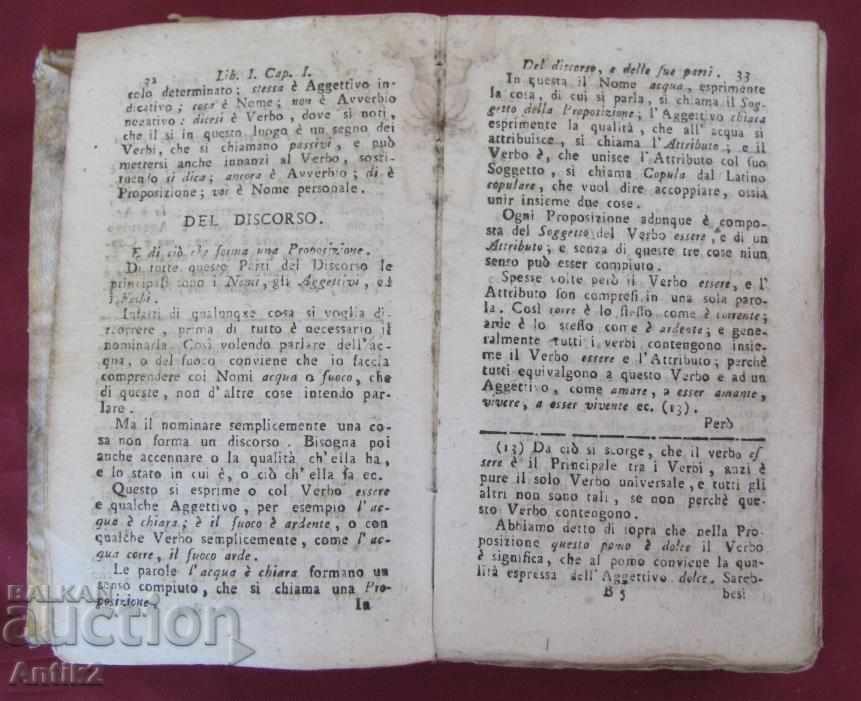 32 Lib. I. Cap. I.
colo determinato; stessa è Aggettivo in-
dicativo; cosa è Nome; non è Avverbio
negativo: dicesi è Verbo, dove si noti,
che il si in questo luogo è un segno dei
Verbi, che si chiamano passivi, e può
mettersi anche innanzi al Verbo, scri-
vendo si dica; ancora è Avverbio; di è
Proposizione; voi è Nome personale.
DEL DISCORSO.
E di ciò che forma una Proposizione.
Di tutte queste Parti del Discorso le
principali sono i Nomi, gli Aggettivi, ed
i Verbi.
Infatti di qualunque cosa si voglia di-
scorrere, prima di tutto è necessario il
nominarla. Così volendo parlare dell'ac-
qua, o del fuoco conviene che io faccia
comprendere coi Nomi acqua o fuoco, che
di queste, non d'altre cose intendo par-
lare.
Ma il nominare semplicemente una co-
sa non forma un discorso. Bisogna poi
anche accennare o la qualità ch'ella ha,
e lo stato in cui è, o ciò ch'ella fa ec.
Questo si esprime o col Verbo essere
e qualche Aggettivo, per esempio l'ac-
qua è chiara; è il fuoco è ardente, o con
qualche Verbo semplicemente, come l'ac-
qua corre, il fuoco arde.
Le parole l'acqua è chiara formano un
senso compiuto, che si chiama una Pro-
posizione.
In
Del discorso, e delle sue parti. 33
In questa il Nome acqua, esprimente
la cosa, di cui si parla, si chiama il Sog-
getto della Proposizione; l'Aggettivo chiara
esprimente la qualità, che all'acqua si
attribuisce, si chiama l'Attributo; e il
Verbo è, che unisce l'Attributo col suo
Soggetto, si chiama Copula dal Latino
copulare, che vuol dire accoppiare, ossia
unir insieme due cose.
Ogni Proposizione adunque è compo-
sta del Soggetto del Verbo essere, e di un
Attributo; e senza di queste tre cose niun
senso può esser compiuto.
Spesse volte però il Verbo essere, e l'
Attributo son compresi in una sola paro-
la. Così corre è lo stesso come è corrente;
arde è lo stesso come è ardente; e gene-
ralmente tutti i verbi contengono insie-
me il Verbo essere e l'Attributo; perchè
tutti equivalgono a questo Verbo e ad un
Aggettivo, come amare, a esser amante,
vivere, a esser vivente ec. (13).
Però
(13) Da ciò si scorge, che il verbo es
sere è il Principale tra i Verbi, anzi è
pure il solo Verbo universale, e tutti gli
altri non sono tali, se non perchè que-
sto Verbo contengono.
Abbiamo detto di sopra che nella Pro-
posizione questo pomo è dolce il Verbo
è significa, che al pomo conviene la qua-
lità espressa dell'Aggettivo dolce. Sareb-
B 5 besi
BALKAN
auction
Antik2